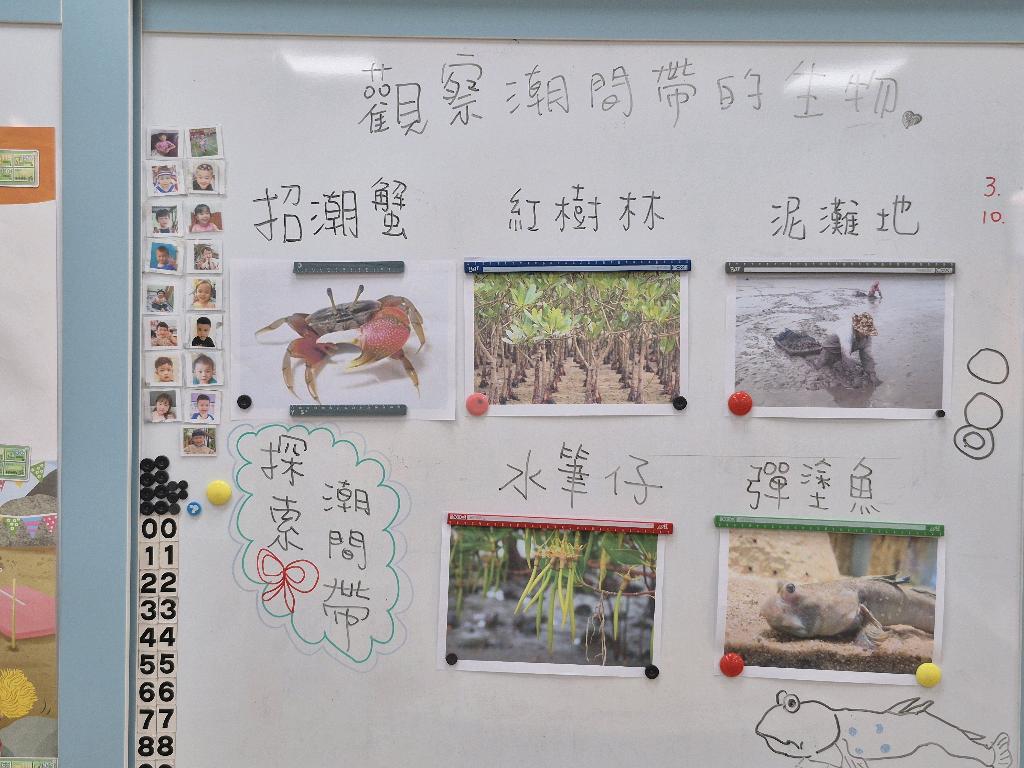 觀察潮間帶的生物
招潮蟹
紅樹林
泥灘地
3.
10.
探索
潮間帶
水筆仔
彈塗魚
00
11
22
33
44
55
66
77
88